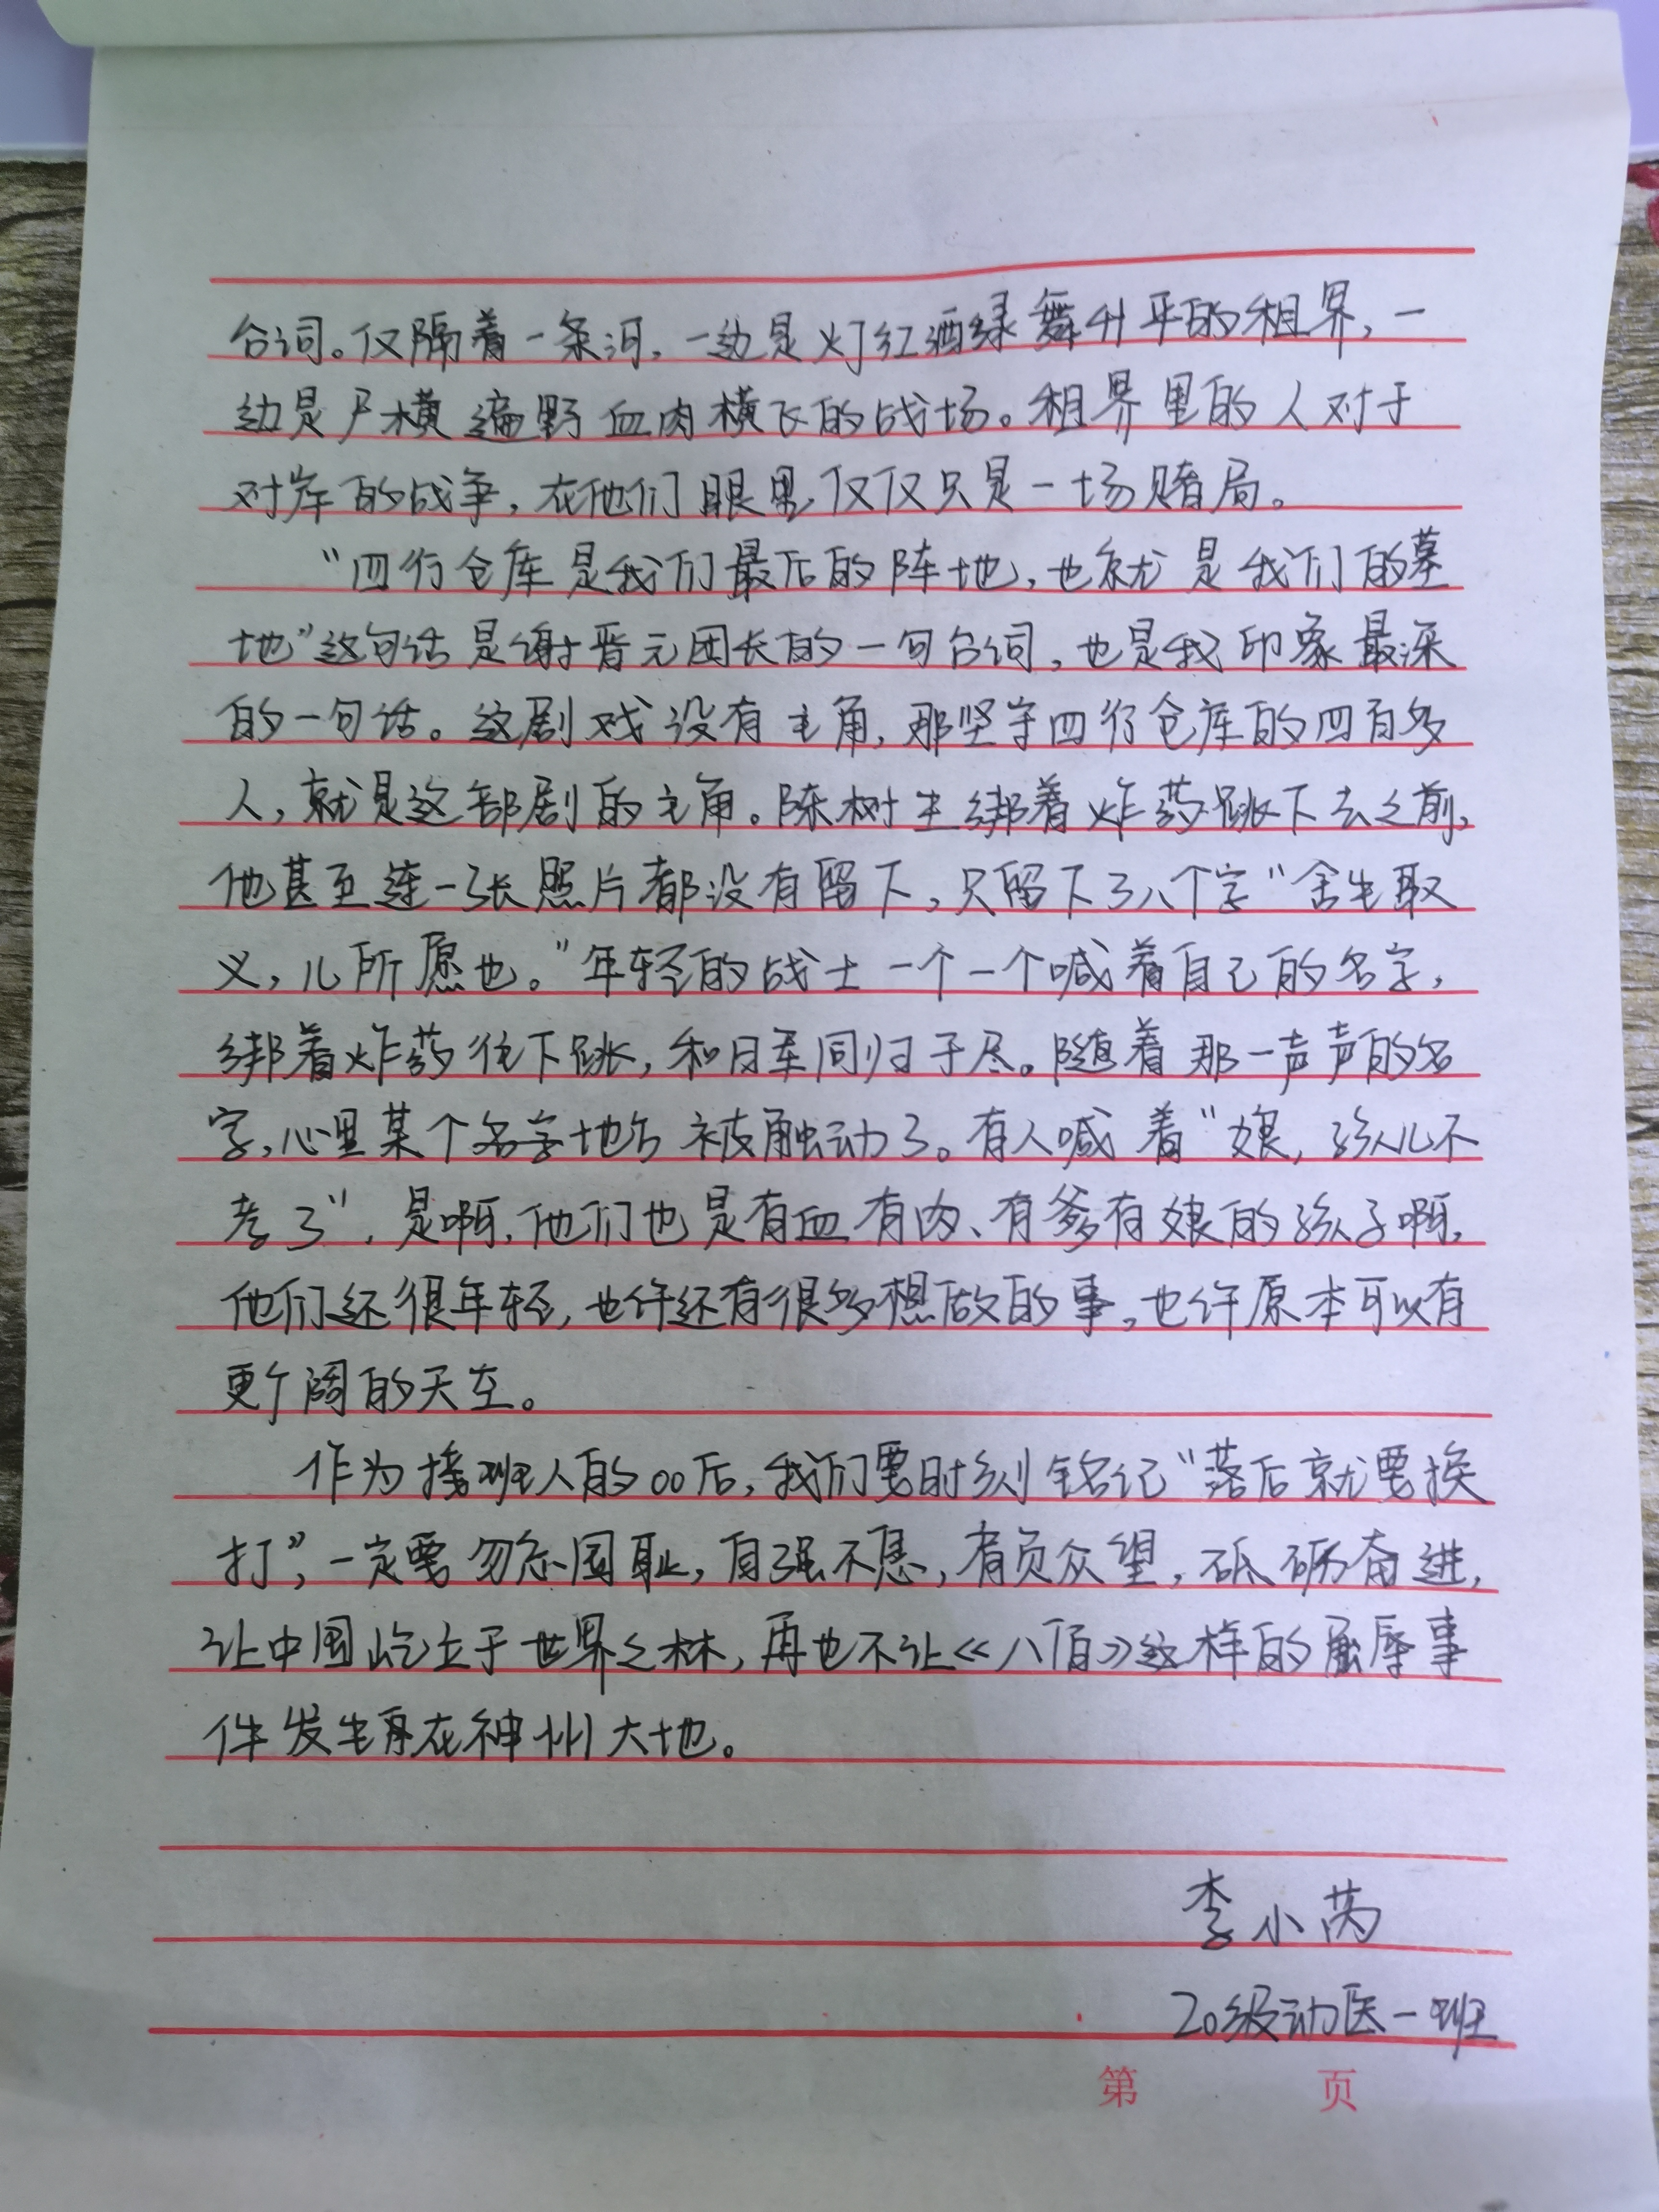 台词。仅隔着一条河，一边是灯红酒绿舞升平的租界，一
边是尸横遍野血肉横飞的战场。租界里的人对于
对岸的战争，在他们眼里仅仅只是一场赌局。
“四行仓库是我们最后的阵地，也就是我们的墓
地”这句话是谢晋元团长的一句台词，也是我印象最深
的一句话。这剧戏没有主角，那坚守四行仓库的四百多
人，就是这部剧的主角。陈树生绑着炸药跳下去之前，
他甚至连一张照片都没有留下，只留下了八个字“舍生取
义，儿所愿也。”年轻的战士一个一个喊着自己的名字，
绑着炸药往下跳，和日军同归于尽。随着那一声声的名
字，心里某个名字地方被触动了。有人喊着“娘，孩儿不
孝了”，是啊，他们也是有血有肉、有爹有娘的孩子啊，
他们还很年轻，也许还有很多想做的事，也许原本可以有
更广阔的天空。
作为接班人的00后，我们要时刻铭记“落后就要挨
打”，一定要勿忘国耻，自强不息，肩负众望，砥砺奋进，
让中国屹立于世界之林，再也不让《八佰》这样的屈辱事
件发生再在神州大地。
李小芮
20级动医一班
第 页